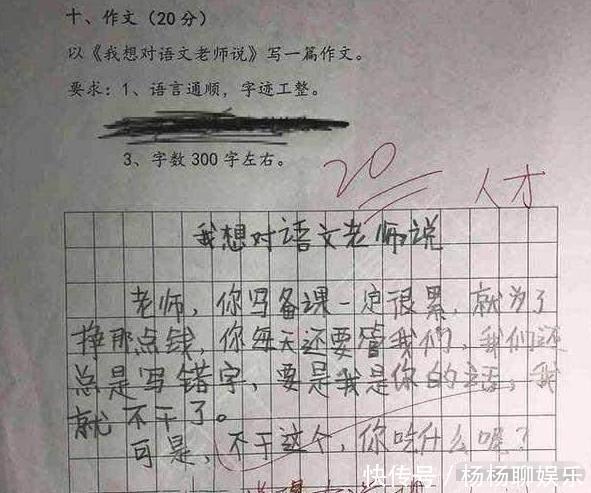 十、作文(20分)
以《我想对语文老师说》写一篇作文。
要求：1、语言通顺，字迹工整。
3、字数300字左右。
20
人才
我想对语文老师说
老师，你写备课一定很累，就为了
挣那点钱，你每天还要管我们，我们还
总是写错字，要是我是你的话，我
就不干了。
可是，不干这个，你吃什么呢？
快传号/杨杨聊娱乐